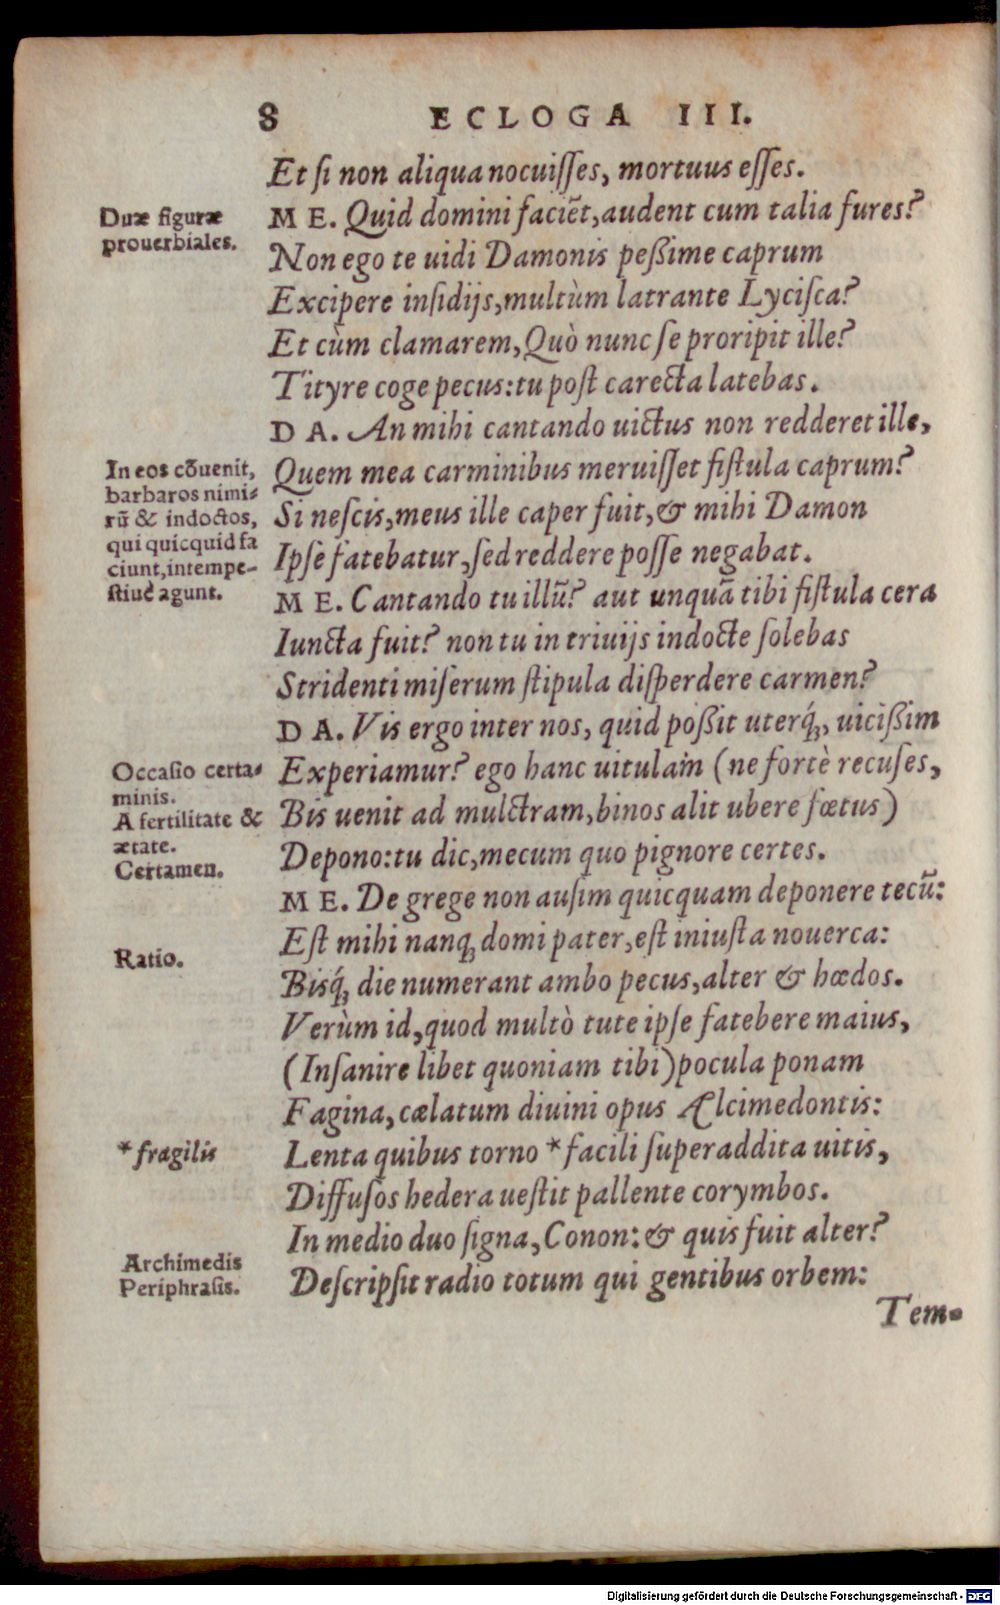 8 ECLOGA III.
Et ſi non aliqua nocuiſſes, mortuus eſſes.
Duæ figuræ
prouerbiales.
M E. Quid domini faciēt, audent cum talia fures?
Non ego te uidi Damonis peßime caprum
Excipere inſidijs, multùm latrante Lyciſca?
Et cùm clamarem, Quò nunc ſe proripit ille?
Tityre coge pecus: tu poſt carecta latebas.
D A. An mihi cantando uictus non redderet ille,
In eos cōuenit,
barbaros nimi⸗
rū & indoctos,
qui quicquid fa
ciunt, intempe-
ſtiue agunt.
Quem mea carminibus meruiſſet fiſtula caprum?
Si neſcis, meus ille caper fuit, & mihi Damon
Ipſe fatebatur, ſed reddere poſſe negabat.
M E. Cantando tu illū? aut unquā tibi fiſtula cera
Iuncta fuit? non tu in triuijs indocte ſolebas
Stridenti miſerum ſtipula diſperdere carmen?
D A. Vis ergo inter nos, quid poßit uterq́;, uicißim
Occaſio certa⸗
minis.
A fertilitate &
ætate.
Certamen.
Experiamur? ego hanc uitulam (ne fortè recuſes,
Bis uenit ad mulctram, binos alit ubere fœtus)
Depono: tu dic, mecum quo pignore certes.
M E. De grege non auſim quicquam deponere tecū:
Ratio.
Eſt mihi nanq; domi pater, eſt iniuſta nouerca:
Bisq́; die numerant ambo pecus, alter & hœdos.
Verùm id, quod multò tute ipſe fatebere maius,
(Inſanire libet quoniam tibi) pocula ponam
Fagina, cælatum diuini opus Alcimedontis:
*fragilis
Lenta quibus torno *facili ſuperaddita uitis,
Diffuſos hedera ueſtit pallente corymbos.
In medio duo ſigna, Conon: & quis fuit alter?
Archimedis
Periphraſis.
Deſcripſit radio totum qui gentibus orbem:
Tem⸗
Digitalisierung gefördert durch die Deutsche Forschungsgemeinschaft - DFG